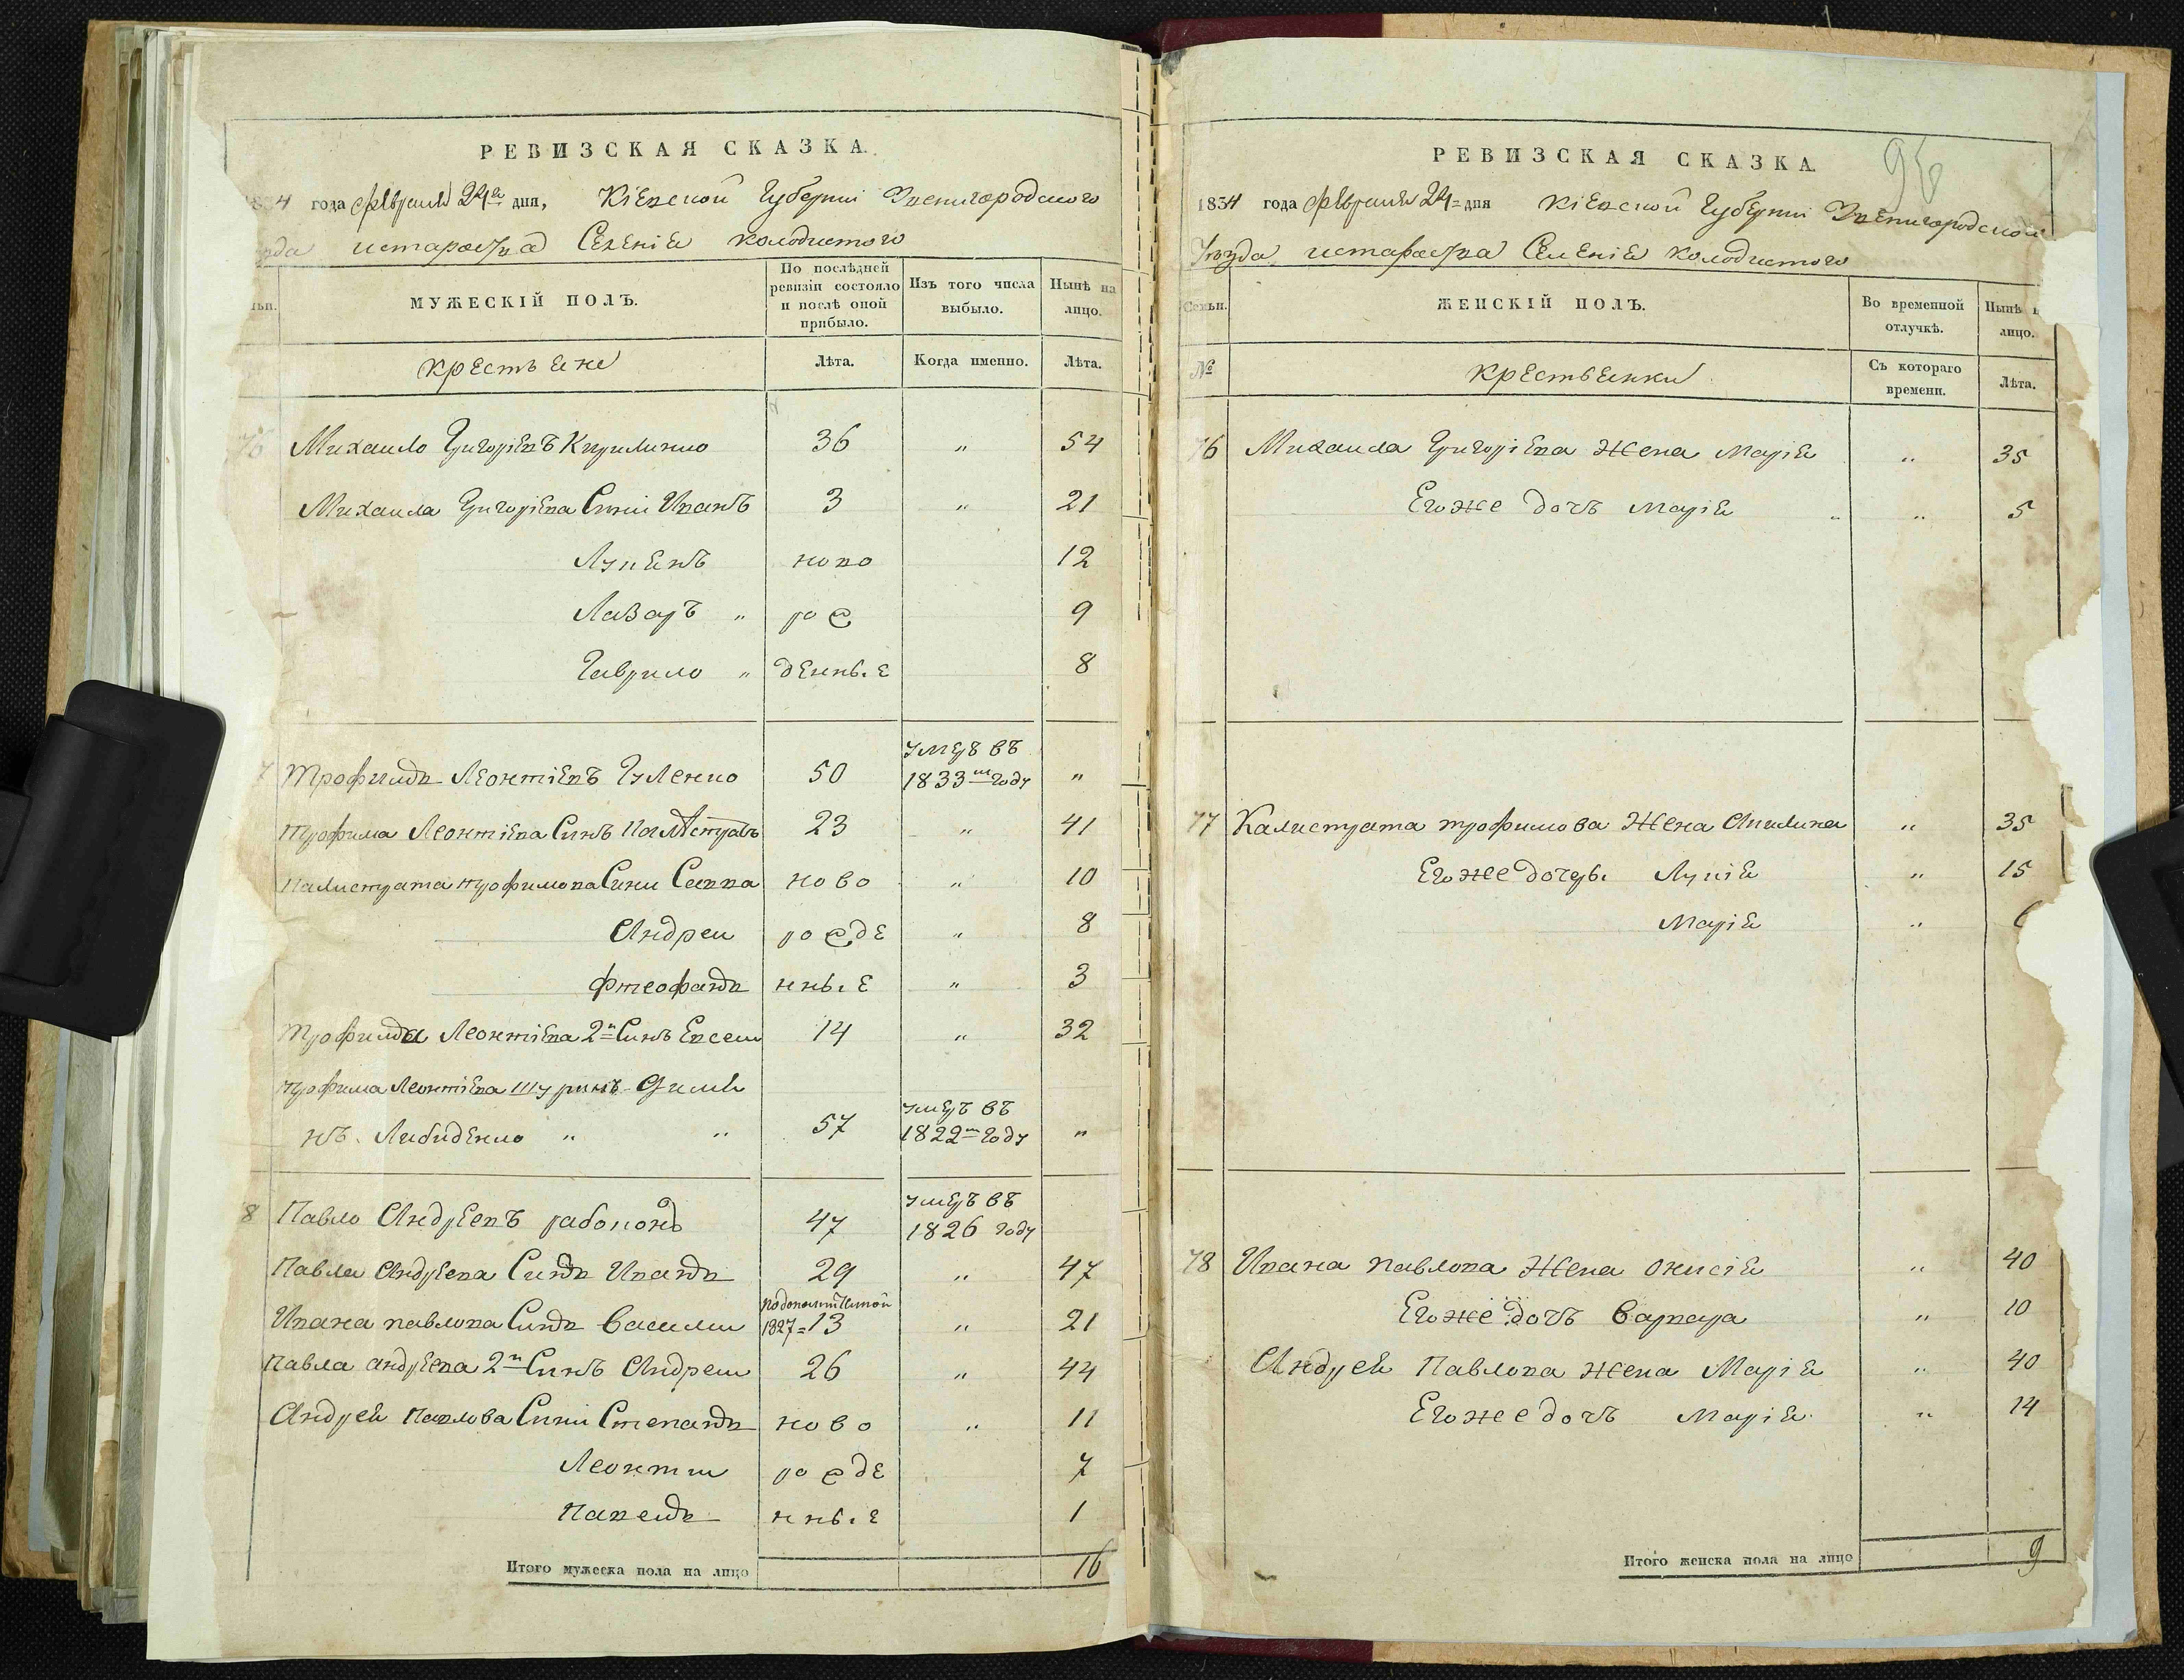 РЕВИЗСКАЯ СКАЗКА.
1834 года февраля 24го дня, Кіевской Губерніи Звенигородского
староства Селеніе Колодистого
МУЖЕСКІЙ ПОЛЪ.
По послѣдней ревизіи состояло и послѣ оной прибыло.
Изъ того числа выбыло.
Нынѣ на лицо.
Крестьяне
Лѣта.
Когда именно.
Лѣта.
76 Михаило Григоріевъ Кирилипко 36 „ 54
Михаила Григоріева Сини Иванъ 3 „ 21
Лукянъ ново 12
Лазаръ „ рож 9
Гаврило „ денные 8
7 Трофимъ Леонтіевъ Гуленко 50 умеръ въ 1833м году „
Трофима Леонтіева Синъ Калѣстратъ 23 „ 41
Калистрата трофимова Сини Савва ново „ 10
Андрей рожде „ 8
Фтеофанъ нные „ 3
Трофима Леонтіева 2й Синъ Евсей 14 „ 32
трофима Леонтіева шуринъ Фили
нъ Либиденко „ „ 57 умеръ въ 1822м году „
8 Павло Андреевъ рабоконь 47 умеръ въ 1826 году
Павла Андреева Синъ Иванъ 29 „ 47
Ивана павлова Синъ Василий по дополнителной 1827=13 „ 21
Павла андреева 2й Синъ Андрей 26 „ 44
Андрея Павлова Сини Степанъ ново „ 11
Леонтий рожде 7
Павелъ нные 1
Итого мужеска пола на лицо 16
96
РЕВИЗСКАЯ СКАЗКА
1834 года февраля 24=дня Кіевской Губерніи Звенигородского
Уезда староства Селеніе Колодистого
Семьи.
ЖЕНСКІЙ ПОЛЪ.
Во временной отлучкѣ.
Нынѣ
лицо.
№
Крестьянки
Съ котораго времени.
Лѣта.
76 Михаила Григоріева Жена Марія „ 35
Его же дочъ Марія „ „ 5
77 Калистрата трофимова Жена Акилина „ 35
Его же дочеры Лукія „ 15
Марія „ 6
78 Ивана Павлова Жена Онисія „ 40
Его же дочъ Варвара „ 10
Андрея Павлова жена Марія „ 40
Его же дочъ Марія „ 14
Итого женска пола на лицо 9